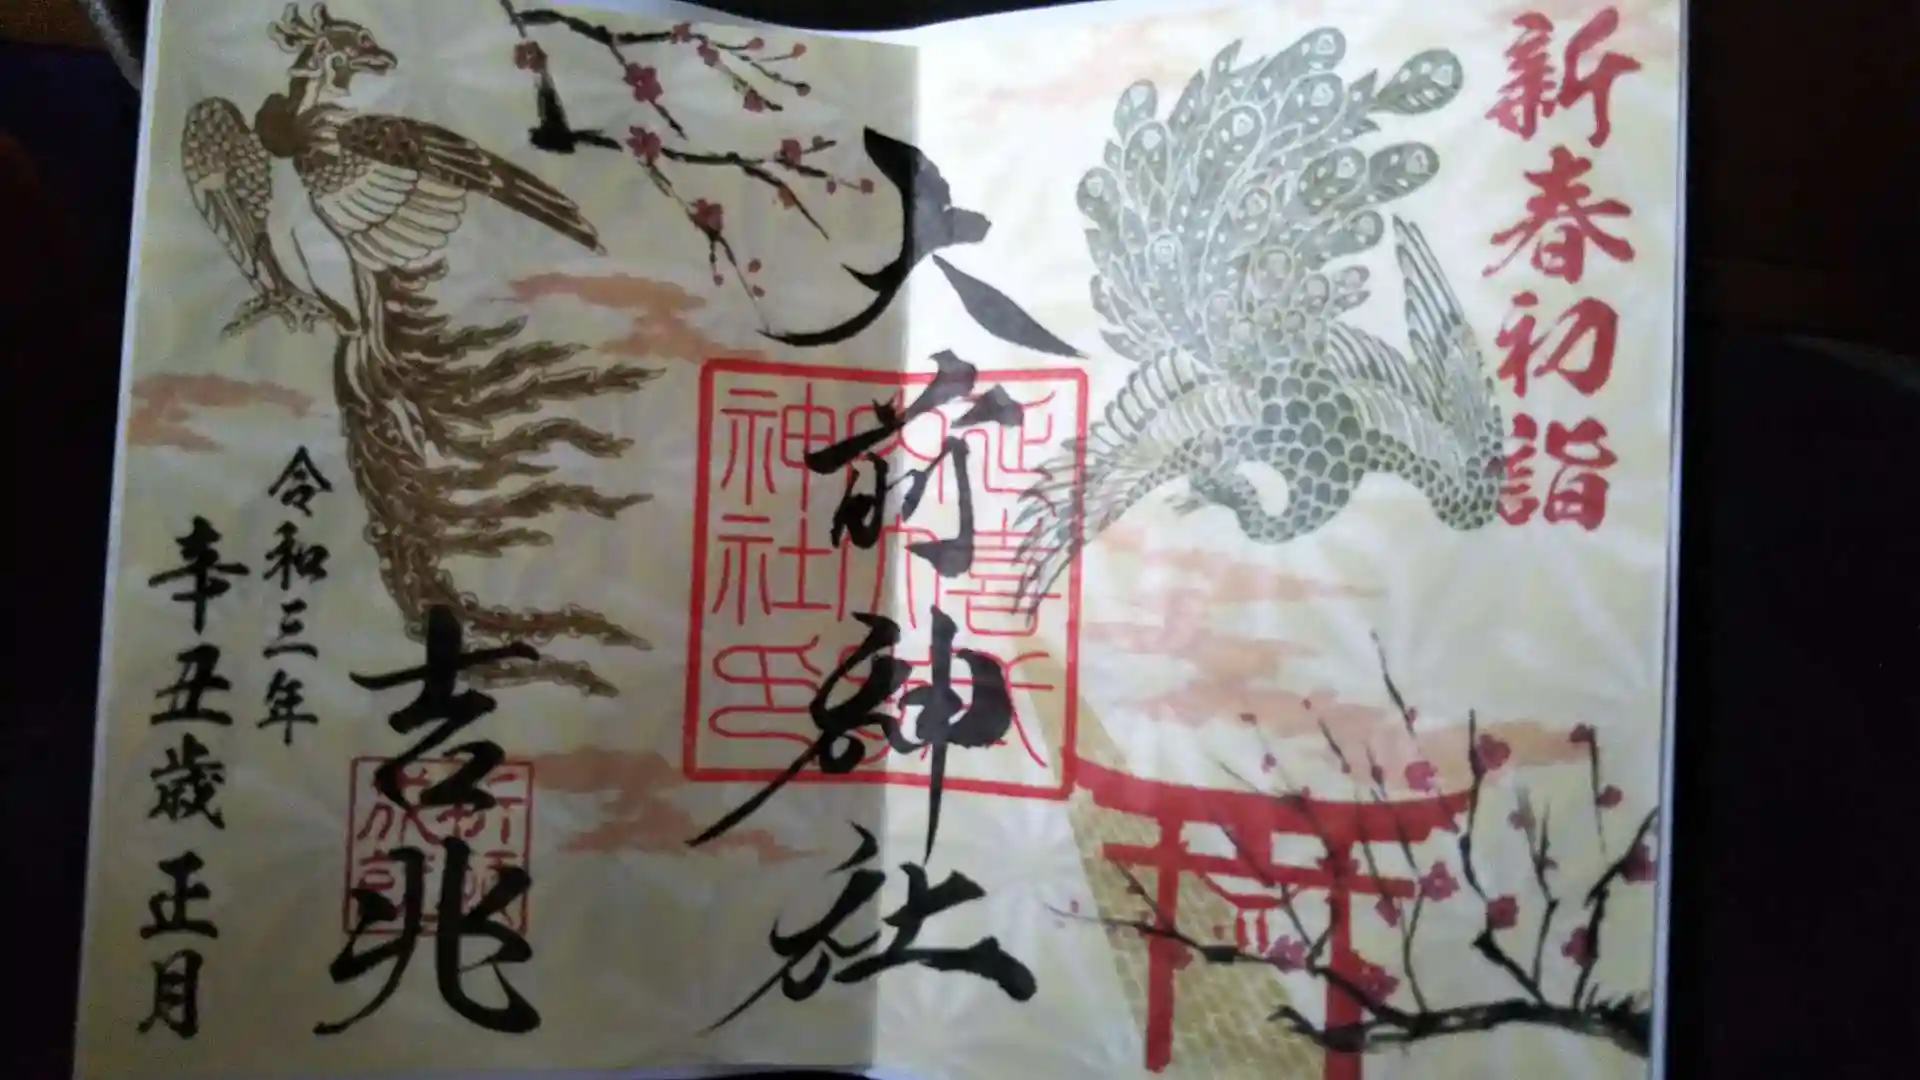 新春初詣
大前神社
延喜式内
神社印
吉兆
令和三年
辛丑歳正月